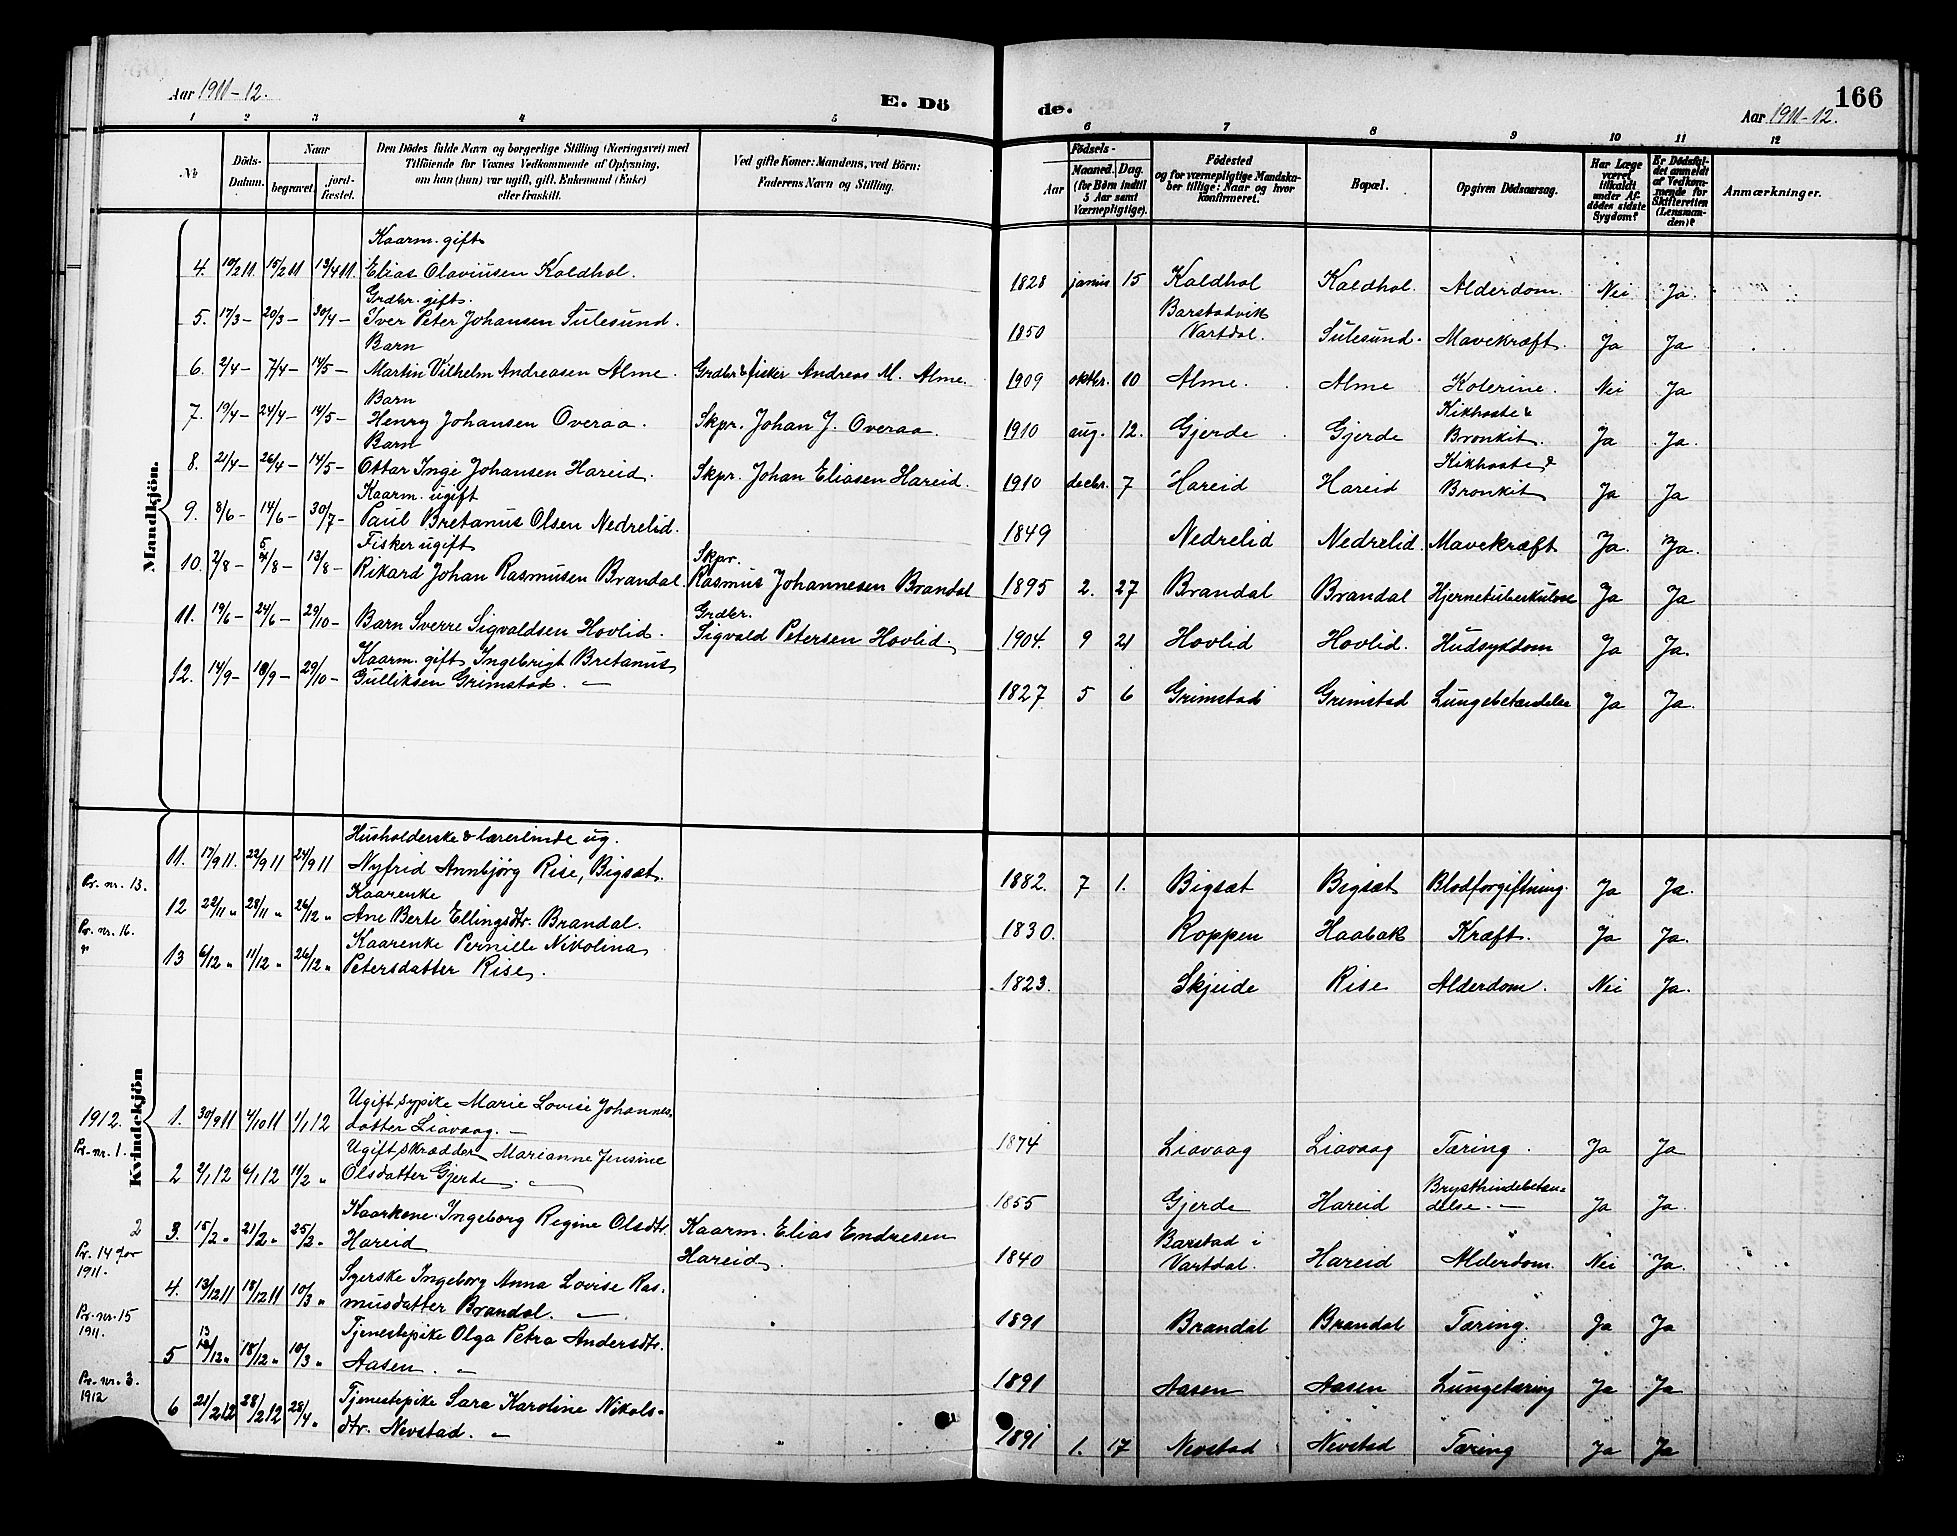 Aar 1911-12.
E. Dö
de.
Aar 1911-12.
166
1 2 3 4 5 6 7 8 9 10 11 12
No
Döds-Datum.
Naar
begravet.
jord-fæstet.
Den Dödes fulde Navn og borgerlige Stilling (Næringsvei) med
Tilföiende for Voxnes Vedkommende af Oplysning,
om han (hun) var ugift, gift, Enkemand (Enke)
eller fraskilt.
Ved gifte Koner: Mandens, ved Börn:
Faderens Navn og Stilling.
Födsels-
Aar
Maaned. Dag.
(for Börn indtil
5 Aar samt
Værnepligtige).
Födested
og for værnepligtige Mandska-
ber tillige: Naar og hvor
konfirmeret.
Bopæl.
Opgiven Dödsaarsag.
Har Læge
været
tilkaldt
under Af-
dödes sidste
Sygdom?
Er Dödsfal-
det anmeldt
af Vedkom-
mende for
Skifteretten
(Lensman-
den)?
Anmærkninger.
Mandkjön.
Kaarm. gift
4. 10/2 11. 15/2 11 17/4 11. Elias Olaviusen Koldhol. 1828 janus 15 Koldhol Koldhol. Alderdom. Nei Ja.
Grdbr. gift.
5. 17/3 - 20/3 - 30/4 - Iver Peter Johansen Sulesund. 1850 Barstadvik Vartdal. Sulesund. Mavekræft. Ja Ja
Barn
6. 2/4 - 7/4 - 14/5 - Martin Vilhelm Andreasen Alme. Grdbr & fisker Andreas M. Alme. 1909 oktbr. 10 Alme. Alme Kolerine. Nei Ja
Barn
7. 19/4 - 24/4 - 14/5 - Henry Johansen Overaa. Skpr. Johan J. Overaa. 1910 aug. 12. Gjerde Gjerde Kikhoste & Bronkit. Ja Ja.
Barn
8. 21/4 - 26/4 - 14/5 - Ottar Inge Johansen Hareid. Skpr. Johan Eliasen Hareid. 1910 decbr. 7 Hareid Hareid Kikhoste & Bronkit Ja Ja
Kaarm. ugift
9. 8/6 - 14/6 - 30/7 - Paul Bretanus Olsen Nedrelid. 1849 Nedrelid Nedrelid. Mavekræft Ja. Ja.
Fisker ugift
Skpr.
10. 2/8 - 5/8 - 13/8 - Rikard Johan Rasmusen Brandal. Rasmus Johannesen Brandal 1895 2. 27 Brandal Brandal Hjernetuberkulose Ja Ja
Grdbr.
11. 19/6 - 24/6 - 29/10 - Barn Sverre Sigvaldsen Hovlid. Sigvald Petersen Hovlid. 1904. 9 21 Hovlid Hovlid. Hudsygdom Ja Ja.
Kaarm. gift Ingebrigt Bretanus
12. 14/9 - 18/9 - 29/10 - Gulliksen Grimstad. — 1827 5 6 Grimstad Grimstad Lungebetændelse Ja Ja.
Kvindekjön
Husholderske & lærerinde ug.
11. 17/9 11. 22/9 11 24/9 11 Nyfrid Annbjörg Rise, Bigset. 1882. 7 1. Bigsæt Bigsæt Blodforgiftning. Ja Ja.
Pr. nr. 13.
Kaarenke
12 22/11 " 28/11 " 26/12 " Ane Berte Ellingsdtr. Brandal. 1830. Roppen Haabak Kræft. Ja Ja.
Pr. nr. 16.
Kaarenke Pernille Nikolina
13 6/12 " 11/12 " 26/12 " Petersdatter Rise. 1823. Skjeide Rise Alderdom. Nei Ja.
1912.
Ugift sypike Marie Lovise Johannes-
1. 30/9 11 4/10 11 1/1 12 datter Liavaag. — 1874 Liavaag Liavaag Tæring. Ja Ja
Pr. nr. 1.
Ugift skrædder Marianne Jensine
2 2/1 12 6/1 12 11/2 " Olsdatter Gjerde. — 1855 Gjerde Hareid Brysthindebetæn=delse. — Ja Ja.
2
Kaarkone Ingeborg Regine Olsdtr. Kaarm. Elias Endresen
3. 15/2 " 21/2 " 25/2 " Hareid Hareid. 1840 Barstad i Vartdal. Hareid Alderdom. Nei Ja.
Pr. 14 for
1911.
Syerske Ingeborg Anna Lovise Ras-
4. 13/12 11 18/12 11 10/3 " musdatter Brandal. — 1891 Brandal Brandal Tæring. Ja Ja
Pr. nr. 15
1911.
Tjenestepike Olga Petra Andersdtr.
5 13/12 " 18/12 " 10/3 " Aasen. — 1891 Aasen Aasen Lungetæring Ja Ja
Pr. nr. 3.
1912
Tjenestepike Sara Karoline Nikols-
6 21/2 12 28/2 12 28/4 " dtr. Nevstad. — 1891 1. 17 Nevstad Nevstad Tæring Ja Ja